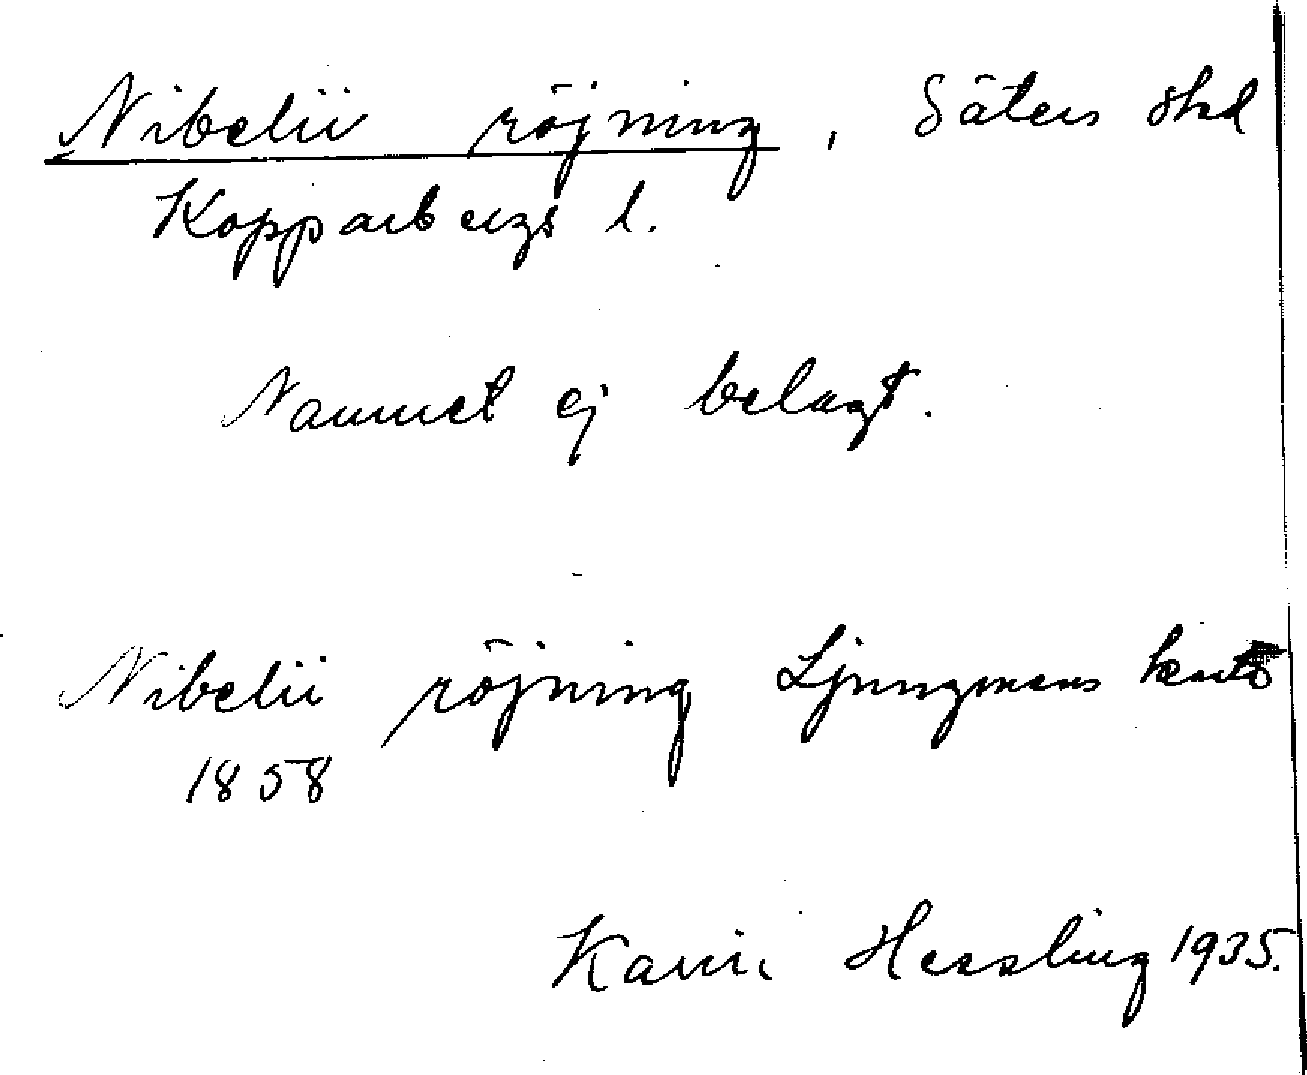 Nibelii röjning, Säters skd
Kopparbergs l.
Namnet ej belagt.
Nibelii röjning Ljungmans karta
1858
Karin Hessling 1935.